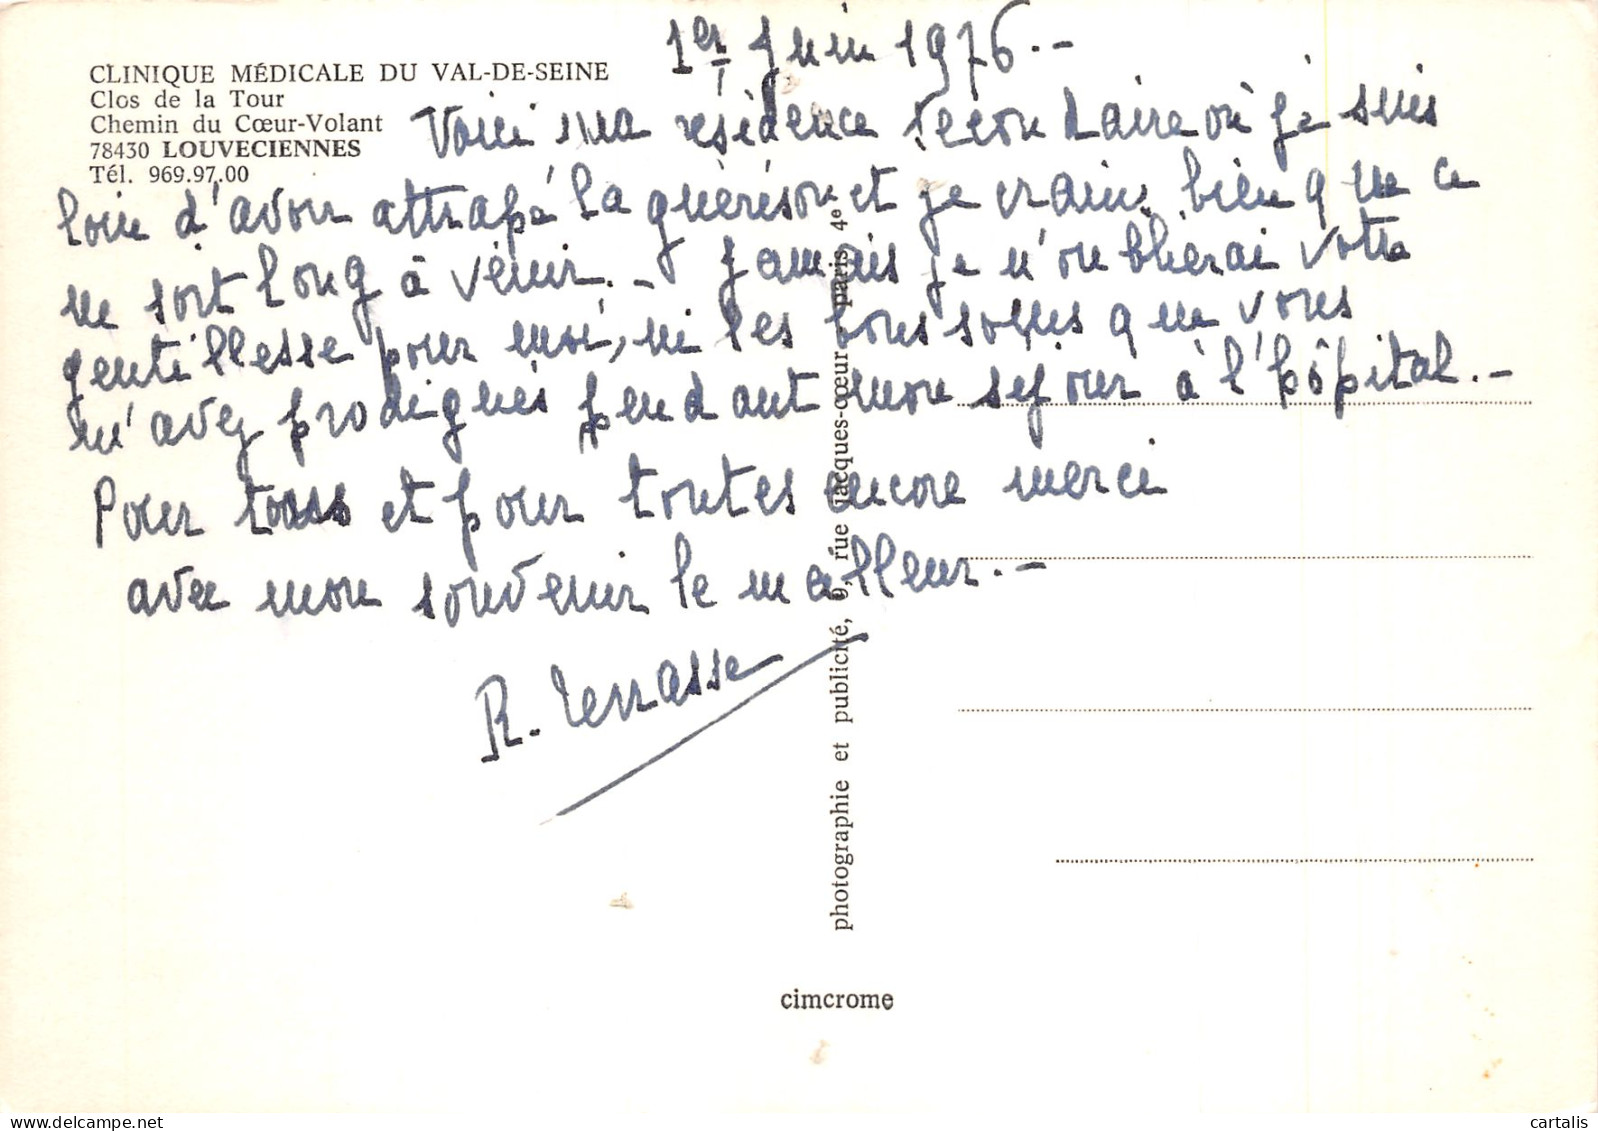 1er Juin 1976.-
CLINIQUE MÉDICALE DU VAL-DE-SEINE
Clos de la Tour
Chemin du Cœur-Volant
78430 LOUVECIENNES
Tél. 969.97.00
Voici ma résidence secondaire où je suis
loin d'avoir attrapé la guérison et je crains bien que ce
ne soit long à venir.- Jamais je n'oublierai votre
gentillesse pour moi, ni les bons soins que vous
m'avez prodigués pendant mon séjour à l'hôpital.-
Pour tous et pour toutes encore merci
avec mon souvenir le meilleur.-
R. Terrasse
photographie et publicité, 9, rue jacques-cœur - paris 4e
cimcrome
cartalis.com